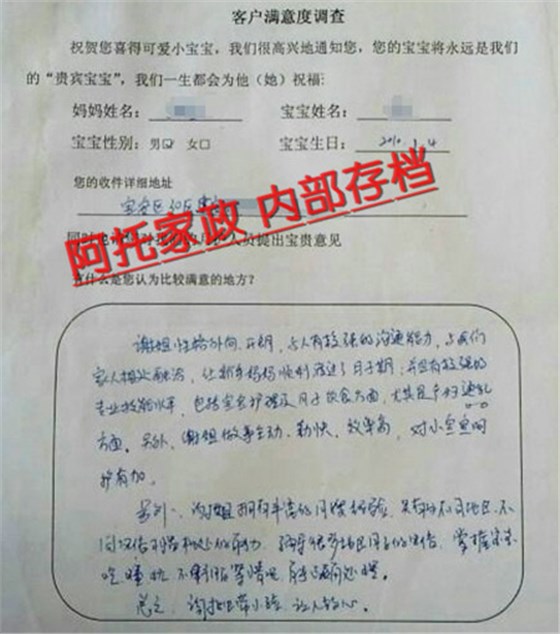 客户满意度调查
祝贺您喜得可爱小宝宝，我们很高兴地通知您，您的宝宝将永远是我们
的“贵宾宝宝”，我们一生都会为他（她）祝福:
妈妈姓名: 宝宝姓名:
宝宝性别: 男☑ 女□ 宝宝生日: 2010.1.4
您的收件详细地址
宝安区
阿托家政 内部存档
同时也 对我们的 人员提出宝贵意见
有什么是您认为比较满意的地方?
谢姐性格外向、开朗，与人有较强的沟通能力，与我们
家人相处融洽，让新手妈妈顺利渡过了月子期，并且有较强的
专业技能水平，包括宝宝护理及月子饮食方面，尤其是产妇
方面。另外，谢姐做事主动、勤快、效率高，对小宝宝呵
护有加。
另外、谢姐拥有丰富的月嫂经验，具有 不同地区、不
同 的能力，
吃 睡 拉 等情况
总之，谢姐 带小孩，让人放心。